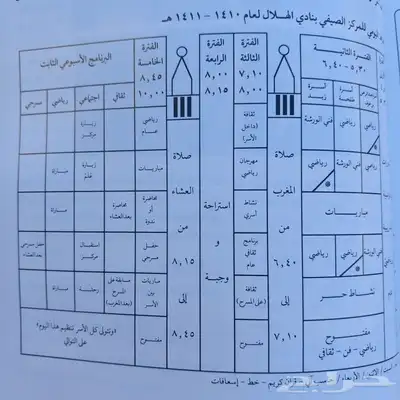 اليومي للمركز الصيفي بنادي الهلال لعام ١٤١٠ - ١٤١١ هـ
الفترة الثانية
٥,٣٠ - ٦,٤٠
الفترة الثالثة
٧,١٠
٨,٠٠
الفترة الرابعة
٨,٠٠
٨,١٥
الفترة الخامسة
٨,٤٥
١٠,٠٠
البرنامج الأسبوعي الثابت
ثقافي
اجتماعي
رياضي
مسرحي
أسرة طلحة
أسرة زيد
رياضي
رياضي
فني الورشة
ثقافة (داخل الأسر)
رياضي عام
زيارة مركز
رياضي
فني الورشة
رياضي
مهرجان رياضي
مباريات
زيارة عالم
مباراة
مباريات
نشاط أسري
محاضرة أو ندوة
محاضرة بعد العشاء
مباراة
فني الورشة
رياضي
رياضي
برنامج ثقافي عام
حفل مسرحي
استقبال مركز
حفل مسرحي بعد العشاء
نشاط حر
ثقافة (على المسرح)
مباريات بين الأسر
مسابقة على المسرح (بعد المغرب)
رحلة
مباراة
مفتوح
رياضي - فن - ثقافي
مفتوح
مفتوح
وتتولى كل الأسر تنظيم هذا اليوم على التوالي
صلاة المغرب من ٦,٤٠ إلى ٧,١٠
استراحة و وجبة
صلاة العشاء من ٨,١٥ إلى ٨,٤٥
السبت / الاثنين / الأربعاء / قرآن كريم - خط - إسعافات
حراج